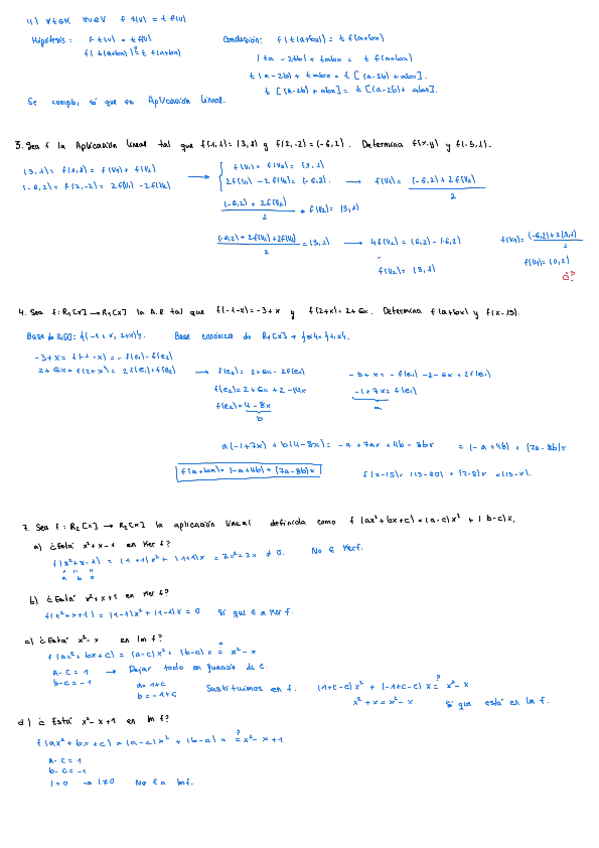 ii) ∀t∈K ∀v∈V f t(v) = t f(v)
Hipótesis: f t(v) = t f(v)
f(t(a+bx)) ?= t f(a+bx)
Conclusión: f(t(a+bx)) = t f(a+bx)
(ta - 2tb) + tabx = t f(a+bx)
t(a-2b) + tabx = t[(a-2b) + abx].
t[(a-2b) + abx] = t[(a-2b) + abx].
Se cumple, sí que es Aplicación lineal.
3. Sea f la Aplicación lineal tal que f(1,1) = (3,1) y f(2,-2) = (-6,2). Determina f(x,y) y f(-5,1).
(3,1) = f(1,1) = f(v1) + f(v2)
(-6,2) = f(2,-2) = 2f(v1) - 2f(v2)
f(v1) + f(v2) = (3,1)
2f(v1) - 2f(v2) = (-6,2). → f(v1) = (-6,2) + 2f(v2) / 2
(-6,2) + 2f(v2) / 2 + f(v2) = (3,1)
(-6,2) + 2f(v2) + 2f(v2) / 2 = (3,1) → 4f(v2) = (6,2) - (-6,2)
f(v2) = (3,1)
f(v1) = (-6,2) + 2(3,1) / 2
f(v1) = (0,2)
¿?
4. Sea f: R1[x] → R1[x] la A.L tal que f(-1-x) = -3+x y f(2+x) = 2+6x. Determina f(a+bx) y f(x-15).
Base de R1[x]: {(-1-x, 2+x)}. Base canónica de R1[x] → {e} = {1,x}.
-3+x = f(-1-x) = -f(e1) - f(e2)
2+6x = f(2+x) = 2f(e1) + f(e2)
→ f(e2) = 2+6x - 2f(e1)
f(e2) = 2+6x + 2 - 14x
f(e2) = 4 - 8x
b
-3+x = -f(e1) - 2 - 6x + 2f(e1)
-1+7x = f(e1)
a
a(-1+7x) + b(4-8x) = -a + 7ax + 4b - 8bx = (-a+4b) + (7a-8b)x
f(a+bx) = (-a+4b) + (7a-8b)x
7. Sea f: R2[x] → R2[x] la aplicación lineal definida como f(ax²+bx+c) = (a-c)x² + (b-c)x,
a) ¿Está x²+x-1 en Ker f?
f(x²+x-1) = (1+1)x² + (1+1)x = 2x²+2x ≠ 0. No ∈ Kerf.
a b c
b) ¿Está x²+x+1 en Ker f?
f(x²+x+1) = (1-1)x² + (1-1)x = 0 Sí que ∈ a Ker f.
c) ¿Está x²-x en Im f?
f(ax²+bx+c) = (a-c)x² + (b-c)x ?= x²-x
a-c = 1 → Dejar todo en función de c.
b-c = -1
a = 1+c
b = -1+c
Sustituimos en f. (1+c-c)x² + (-1+c-c)x ?= x²-x
x²+x = x²-x Sí que está en Im f.
d) ¿Está x²-x+1 en Im f?
f(ax²+bx+c) = (a-c)x² + (b-c) = ?= x²-x+1
a-c = 1
b-c = -1
1=0 → 1≠0 No ∈ a Imf.